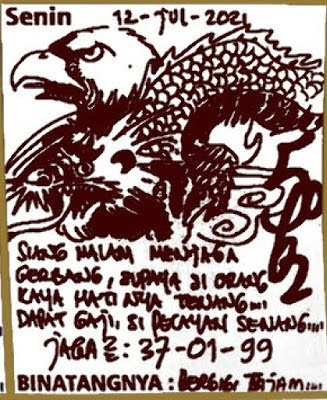 Senin 12-JUL-2021
SIANG MALAM MENJAGA
GERBANG, SUPAYA SI ORANG
KAYA HATI NYA TENANG....
DAPAT GAJI, SI PELAYAN SENANG....
JAGA2 : 37-01-99
BINATANGNYA : BERGIGI TAJAM....